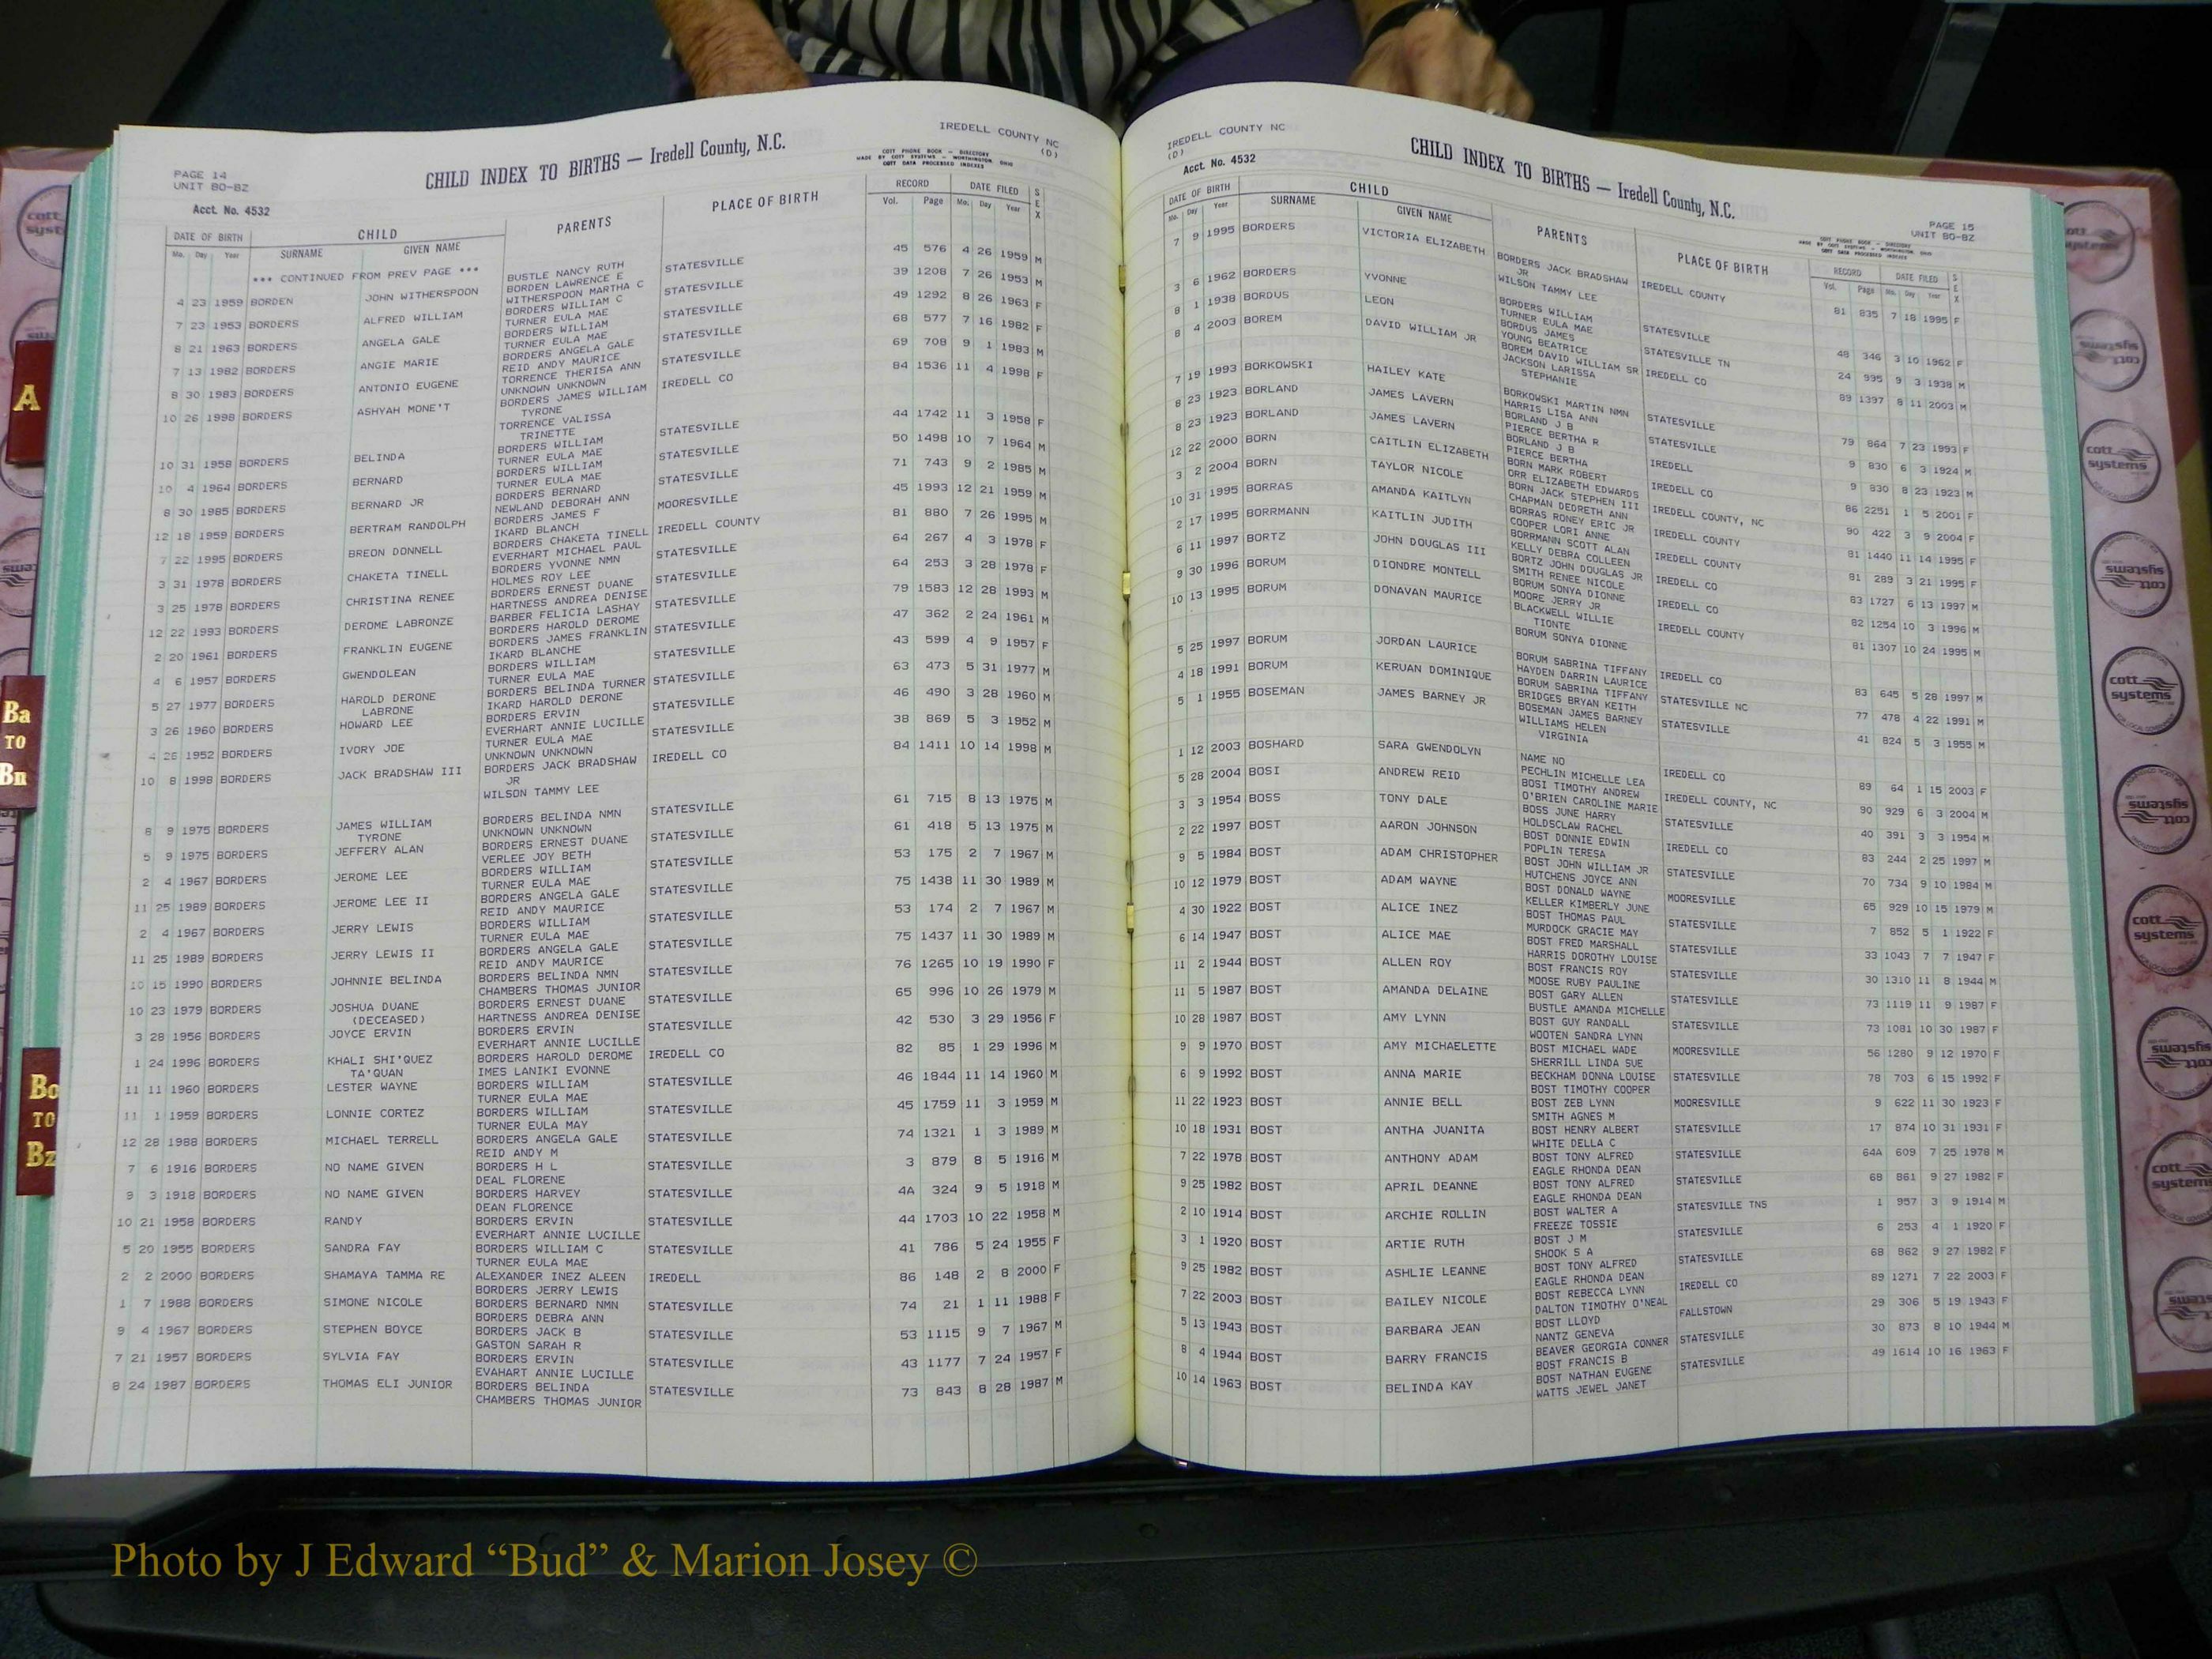 IREDELL COUNTY NC
(D)
PAGE 14
UNIT BO-BZ
CHILD INDEX TO BIRTHS — Iredell County, N.C.
COTT PHONE BOOK - DIRECTORY
MADE BY COTT SYSTEMS - WORTHINGTON, OHIO
COTT DATA PROCESSED INDEXES
Acct. No. 4532
DATE OF BIRTH CHILD PARENTS PLACE OF BIRTH RECORD DATE FILED SEX
Mo. Day Year SURNAME GIVEN NAME Vol. Page Mo. Day Year
*** CONTINUED FROM PREV PAGE *** BUSTLE NANCY RUTH
4 23 1959 BORDEN JOHN WITHERSPOON BORDEN LAWRENCE E STATESVILLE 45 576 4 26 1959 M
WITHERSPOON MARTHA C
7 23 1953 BORDERS ALFRED WILLIAM BORDERS WILLIAM C STATESVILLE 39 1208 7 26 1953 M
TURNER EULA MAE
8 21 1963 BORDERS ANGELA GALE BORDERS WILLIAM STATESVILLE 49 1292 8 26 1963 F
TURNER EULA MAE
7 13 1982 BORDERS ANGIE MARIE BORDERS ANGELA GALE STATESVILLE 68 577 7 16 1982 F
REID ANDY MAURICE
8 30 1983 BORDERS ANTONIO EUGENE TORRENCE THERISA ANN STATESVILLE 69 708 9 1 1983 M
UNKNOWN UNKNOWN
10 26 1998 BORDERS ASHYAH MONE'T BORDERS JAMES WILLIAM IREDELL CO 84 1536 11 4 1998 F
TYRONE
TORRENCE VALISSA
TRINETTE
10 31 1958 BORDERS BELINDA BORDERS WILLIAM STATESVILLE 44 1742 11 3 1958 F
TURNER EULA MAE
10 4 1964 BORDERS BERNARD BORDERS WILLIAM STATESVILLE 50 1498 10 7 1964 M
TURNER EULA MAE
8 30 1985 BORDERS BERNARD JR BORDERS BERNARD STATESVILLE 71 743 9 2 1985 M
NEWLAND DEBORAH ANN
12 18 1959 BORDERS BERTRAM RANDOLPH BORDERS JAMES F MOORESVILLE 45 1993 12 21 1959 M
IKARD BLANCH
7 22 1995 BORDERS BREON DONNELL BORDERS CHAKETA TINELL IREDELL COUNTY 81 880 7 26 1995 M
EVERHART MICHAEL PAUL
3 31 1978 BORDERS CHAKETA TINELL BORDERS YVONNE NMN STATESVILLE 64 267 4 3 1978 F
HOLMES ROY LEE
3 25 1978 BORDERS CHRISTINA RENEE BORDERS ERNEST DUANE STATESVILLE 64 253 3 28 1978 F
HARTNESS ANDREA DENISE
12 22 1993 BORDERS DEROME LABRONZE BARBER FELICIA LASHAY STATESVILLE 79 1583 12 28 1993 M
BORDERS HAROLD DEROME
2 20 1961 BORDERS FRANKLIN EUGENE BORDERS JAMES FRANKLIN STATESVILLE 47 362 2 24 1961 M
IKARD BLANCHE
4 6 1957 BORDERS GWENDOLEAN BORDERS WILLIAM STATESVILLE 43 599 4 9 1957 F
TURNER EULA MAE
5 27 1977 BORDERS HAROLD DERONE BORDERS BELINDA TURNER STATESVILLE 63 473 5 31 1977 M
LABRONE IKARD HAROLD DERONE
3 26 1960 BORDERS HOWARD LEE BORDERS ERVIN STATESVILLE 46 490 3 28 1960 M
EVERHART ANNIE LUCILLE
4 28 1952 BORDERS IVORY JOE TURNER EULA MAE STATESVILLE 38 869 5 3 1952 M
UNKNOWN UNKNOWN
10 8 1998 BORDERS JACK BRADSHAW III BORDERS JACK BRADSHAW IREDELL CO 84 1411 10 14 1998 M
JR
WILSON TAMMY LEE
8 9 1975 BORDERS JAMES WILLIAM BORDERS BELINDA NMN STATESVILLE 61 715 8 13 1975 M
TYRONE UNKNOWN UNKNOWN
5 9 1975 BORDERS JEFFERY ALAN BORDERS ERNEST DUANE STATESVILLE 61 418 5 13 1975 M
VERLEE JOY BETH
2 4 1967 BORDERS JEROME LEE BORDERS WILLIAM STATESVILLE 53 175 2 7 1967 M
TURNER EULA MAE
11 25 1989 BORDERS JEROME LEE II BORDERS ANGELA GALE STATESVILLE 75 1438 11 30 1989 M
REID ANDY MAURICE
2 4 1967 BORDERS JERRY LEWIS BORDERS WILLIAM STATESVILLE 53 174 2 7 1967 M
TURNER EULA MAE
11 25 1989 BORDERS JERRY LEWIS II BORDERS ANGELA GALE STATESVILLE 75 1437 11 30 1989 M
REID ANDY MAURICE
10 15 1990 BORDERS JOHNNIE BELINDA BORDERS BELINDA NMN STATESVILLE 76 1265 10 19 1990 F
CHAMBERS THOMAS JUNIOR
10 23 1979 BORDERS JOSHUA DUANE BORDERS ERNEST DUANE STATESVILLE 65 996 10 26 1979 M
(DECEASED) HARTNESS ANDREA DENISE
3 28 1956 BORDERS JOYCE ERVIN BORDERS ERVIN STATESVILLE 42 530 3 29 1956 F
EVERHART ANNIE LUCILLE
1 24 1996 BORDERS KHALI SHI'QUEZ BORDERS HAROLD DEROME IREDELL CO 82 85 1 29 1996 M
TA'QUAN IMES LANIKI EVONNE
11 11 1960 BORDERS LESTER WAYNE BORDERS WILLIAM STATESVILLE 46 1844 11 14 1960 M
TURNER EULA MAE
11 1 1959 BORDERS LONNIE CORTEZ BORDERS WILLIAM STATESVILLE 45 1759 11 3 1959 M
TURNER EULA MAY
12 28 1988 BORDERS MICHAEL TERRELL BORDERS ANGELA GALE STATESVILLE 74 1321 1 3 1989 M
REID ANDY M
7 6 1916 BORDERS NO NAME GIVEN BORDERS H L STATESVILLE 3 879 8 5 1916 M
DEAL FLORENE
9 3 1918 BORDERS NO NAME GIVEN BORDERS HARVEY STATESVILLE 4A 324 9 5 1918 M
DEAN FLORENCE
10 21 1958 BORDERS RANDY BORDERS ERVIN STATESVILLE 44 1703 10 22 1958 M
EVERHART ANNIE LUCILLE
5 20 1955 BORDERS SANDRA FAY BORDERS WILLIAM C STATESVILLE 41 786 5 24 1955 F
TURNER EULA MAE
2 2 2000 BORDERS SHAMAYA TAMMA RE ALEXANDER INEZ ALEEN IREDELL 86 148 2 8 2000 F
BORDERS JERRY LEWIS
1 7 1988 BORDERS SIMONE NICOLE BORDERS BERNARD NMN STATESVILLE 74 21 1 11 1988 F
BORDERS DEBRA ANN
9 4 1967 BORDERS STEPHEN BOYCE BORDERS JACK B STATESVILLE 53 1115 9 7 1967 M
GASTON SARAH R
7 21 1957 BORDERS SYLVIA FAY BORDERS ERVIN STATESVILLE 43 1177 7 24 1957 F
EVAHART ANNIE LUCILLE
8 24 1987 BORDERS THOMAS ELI JUNIOR BORDERS BELINDA STATESVILLE 73 843 8 28 1987 M
CHAMBERS THOMAS JUNIOR
IREDELL COUNTY NC
(D)
Acct. No. 4532
CHILD INDEX TO BIRTHS — Iredell County, N.C.
PAGE 15
UNIT BO-BZ
COTT PHONE BOOK - DIRECTORY
MADE BY COTT SYSTEMS - WORTHINGTON, OHIO
COTT DATA PROCESSED INDEXES
DATE OF BIRTH CHILD PARENTS PLACE OF BIRTH RECORD DATE FILED SEX
Mo. Day Year SURNAME GIVEN NAME Vol. Page Mo. Day Year
7 9 1995 BORDERS VICTORIA ELIZABETH BORDERS JACK BRADSHAW IREDELL COUNTY 81 835 7 18 1995 F
JR
WILSON TAMMY LEE
3 6 1962 BORDERS YVONNE BORDERS WILLIAM STATESVILLE 48 346 3 10 1962 F
TURNER EULA MAE
8 1 1938 BORDUS LEON BORDUS JAMES STATESVILLE TN 24 995 9 3 1938 M
YOUNG BEATRICE
8 4 2003 BOREM DAVID WILLIAM JR BOREM DAVID WILLIAM SR IREDELL CO 89 1397 8 11 2003 M
JACKSON LARISSA
STEPHANIE
7 19 1993 BORKOWSKI HAILEY KATE BORKOWSKI MARTIN NMN STATESVILLE 79 864 7 23 1993 F
HARRIS LISA ANN
8 23 1923 BORLAND JAMES LAVERN BORLAND J B STATESVILLE 9 830 6 3 1924 M
PIERCE BERTHA R
8 23 1923 BORLAND JAMES LAVERN BORLAND J B IREDELL 9 830 8 23 1923 M
PIERCE BERTHA
12 22 2000 BORN CAITLIN ELIZABETH BORN MARK ROBERT IREDELL CO 86 2251 1 5 2001 F
ORR ELIZABETH EDWARDS
3 2 2004 BORN TAYLOR NICOLE BORN JACK STEPHEN III IREDELL COUNTY, NC 90 422 3 9 2004 F
CHAPMAN DEDRETH ANN
10 31 1995 BORRAS AMANDA KAITLYN BORRAS RONEY ERIC JR IREDELL COUNTY 81 1440 11 14 1995 F
COOPER LORI ANNE
2 17 1995 BORRMANN KAITLIN JUDITH BORRMANN SCOTT ALAN IREDELL COUNTY 81 289 3 21 1995 F
KELLY DEBRA COLLEEN
6 11 1997 BORTZ JOHN DOUGLAS III BORTZ JOHN DOUGLAS JR IREDELL CO 83 1727 6 13 1997 M
SMITH RENEE NICOLE
9 30 1996 BORUM DIONDRE MONTELL BORUM SONYA DIONNE IREDELL CO 82 1254 10 3 1996 M
MOORE JERRY JR
10 13 1995 BORUM DONAVAN MAURICE BLACKWELL WILLIE IREDELL COUNTY 81 1307 10 24 1995 M
TIONTE
BORUM SONYA DIONNE
5 25 1997 BORUM JORDAN LAURICE BORUM SABRINA TIFFANY IREDELL CO 83 645 5 28 1997 M
HAYDEN DARRIN LAURICE
4 18 1991 BORUM KERUAN DOMINIQUE BORUM SABRINA TIFFANY STATESVILLE NC 77 478 4 22 1991 M
BRIDGES BRYAN KEITH
5 1 1955 BOSEMAN JAMES BARNEY JR BOSEMAN JAMES BARNEY STATESVILLE 41 824 5 3 1955 M
WILLIAMS HELEN
VIRGINIA
1 12 2003 BOSHARD SARA GWENDOLYN NAME NO IREDELL CO 89 64 1 15 2003 F
PECHLIN MICHELLE LEA
5 28 2004 BOSI ANDREW REID BOSI TIMOTHY ANDREW IREDELL COUNTY, NC 90 929 6 3 2004 M
O'BRIEN CAROLINE MARIE
3 3 1954 BOSS TONY DALE BOSS JUNE HARRY STATESVILLE 40 391 3 3 1954 M
HOLDSCLAW RACHEL
2 22 1997 BOST AARON JOHNSON BOST DONNIE EDWIN IREDELL CO 83 244 2 25 1997 M
POPLIN TERESA
9 5 1984 BOST ADAM CHRISTOPHER BOST JOHN WILLIAM JR STATESVILLE 70 734 9 10 1984 M
HUTCHENS JOYCE ANN
10 12 1979 BOST ADAM WAYNE BOST DONALD WAYNE MOORESVILLE 65 929 10 15 1979 M
KELLER KIMBERLY JUNE
4 30 1922 BOST ALICE INEZ BOST THOMAS PAUL STATESVILLE 7 852 5 1 1922 F
MURDOCK GRACIE MAY
6 14 1947 BOST ALICE MAE BOST FRED MARSHALL STATESVILLE 33 1043 7 7 1947 F
HARRIS DOROTHY LOUISE
11 2 1944 BOST ALLEN ROY BOST FRANCIS ROY STATESVILLE 30 1310 11 8 1944 M
MOOSE RUBY PAULINE
11 5 1987 BOST AMANDA DELAINE BOST GARY ALLEN STATESVILLE 73 1119 11 9 1987 F
BUSTLE AMANDA MICHELLE
10 28 1987 BOST AMY LYNN BOST GUY RANDALL STATESVILLE 73 1081 10 30 1987 F
WOOTEN SANDRA LYNN
9 9 1970 BOST AMY MICHAELETTE BOST MICHAEL WADE MOORESVILLE 56 1280 9 12 1970 F
SHERRILL LINDA SUE
6 9 1992 BOST ANNA MARIE BECKHAM DONNA LOUISE STATESVILLE 78 703 6 15 1992 F
BOST TIMOTHY COOPER
11 22 1923 BOST ANNIE BELL BOST ZEB LYNN MOORESVILLE 9 622 11 30 1923 F
SMITH AGNES M
10 18 1931 BOST ANTHA JUANITA BOST HENRY ALBERT STATESVILLE 17 874 10 31 1931 F
WHITE DELLA C
7 22 1978 BOST ANTHONY ADAM BOST TONY ALFRED STATESVILLE 64A 609 7 25 1978 M
EAGLE RHONDA DEAN
9 25 1982 BOST APRIL DEANNE BOST TONY ALFRED STATESVILLE 68 861 9 27 1982 F
EAGLE RHONDA DEAN
2 10 1914 BOST ARCHIE ROLLIN BOST WALTER A STATESVILLE TNS 1 957 3 9 1914 M
FREEZE TOSSIE
3 1 1920 BOST ARTIE RUTH BOST J M STATESVILLE 6 253 4 1 1920 F
SHOOK S A
9 25 1982 BOST ASHLIE LEANNE BOST TONY ALFRED STATESVILLE 68 862 9 27 1982 F
EAGLE RHONDA DEAN
7 22 2003 BOST BAILEY NICOLE BOST REBECCA LYNN IREDELL CO 89 1271 7 22 2003 F
DALTON TIMOTHY O'NEAL
5 13 1943 BOST BARBARA JEAN BOST LLOYD FALLSTOWN 29 306 5 19 1943 F
NANTZ GENEVA
8 4 1944 BOST BARRY FRANCIS BEAVER GEORGIA CONNER STATESVILLE 30 873 8 10 1944 M
BOST FRANCIS B
10 14 1963 BOST BELINDA KAY BOST NATHAN EUGENE STATESVILLE 49 1614 10 16 1963 F
WATTS JEWEL JANET
A
Ba
TO
Bn
Bo
TO
Bz
cott systems
cott systems
cott systems
cott systems
cott systems
Photo by J Edward “Bud” & Marion Josey ©